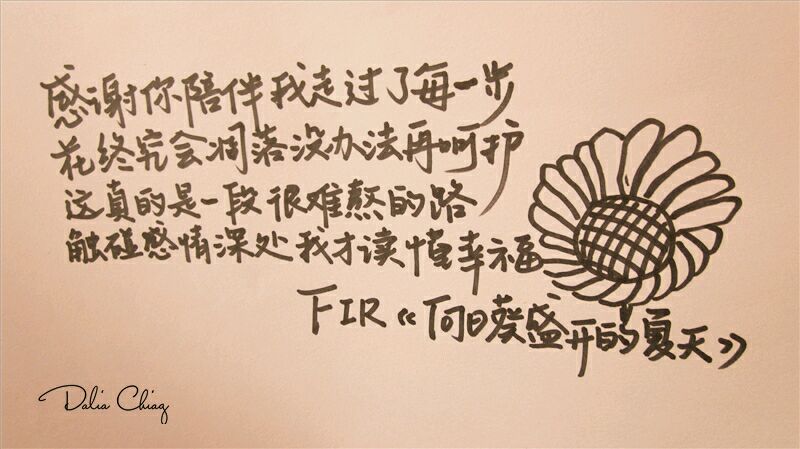 感谢你陪伴我走过了每一步
花终究会凋落没办法再呵护
这真的是一段很难熬的路
触碰感情深处我才读懂幸福
FIR《向日葵盛开的夏天》
Dalia Chiaq